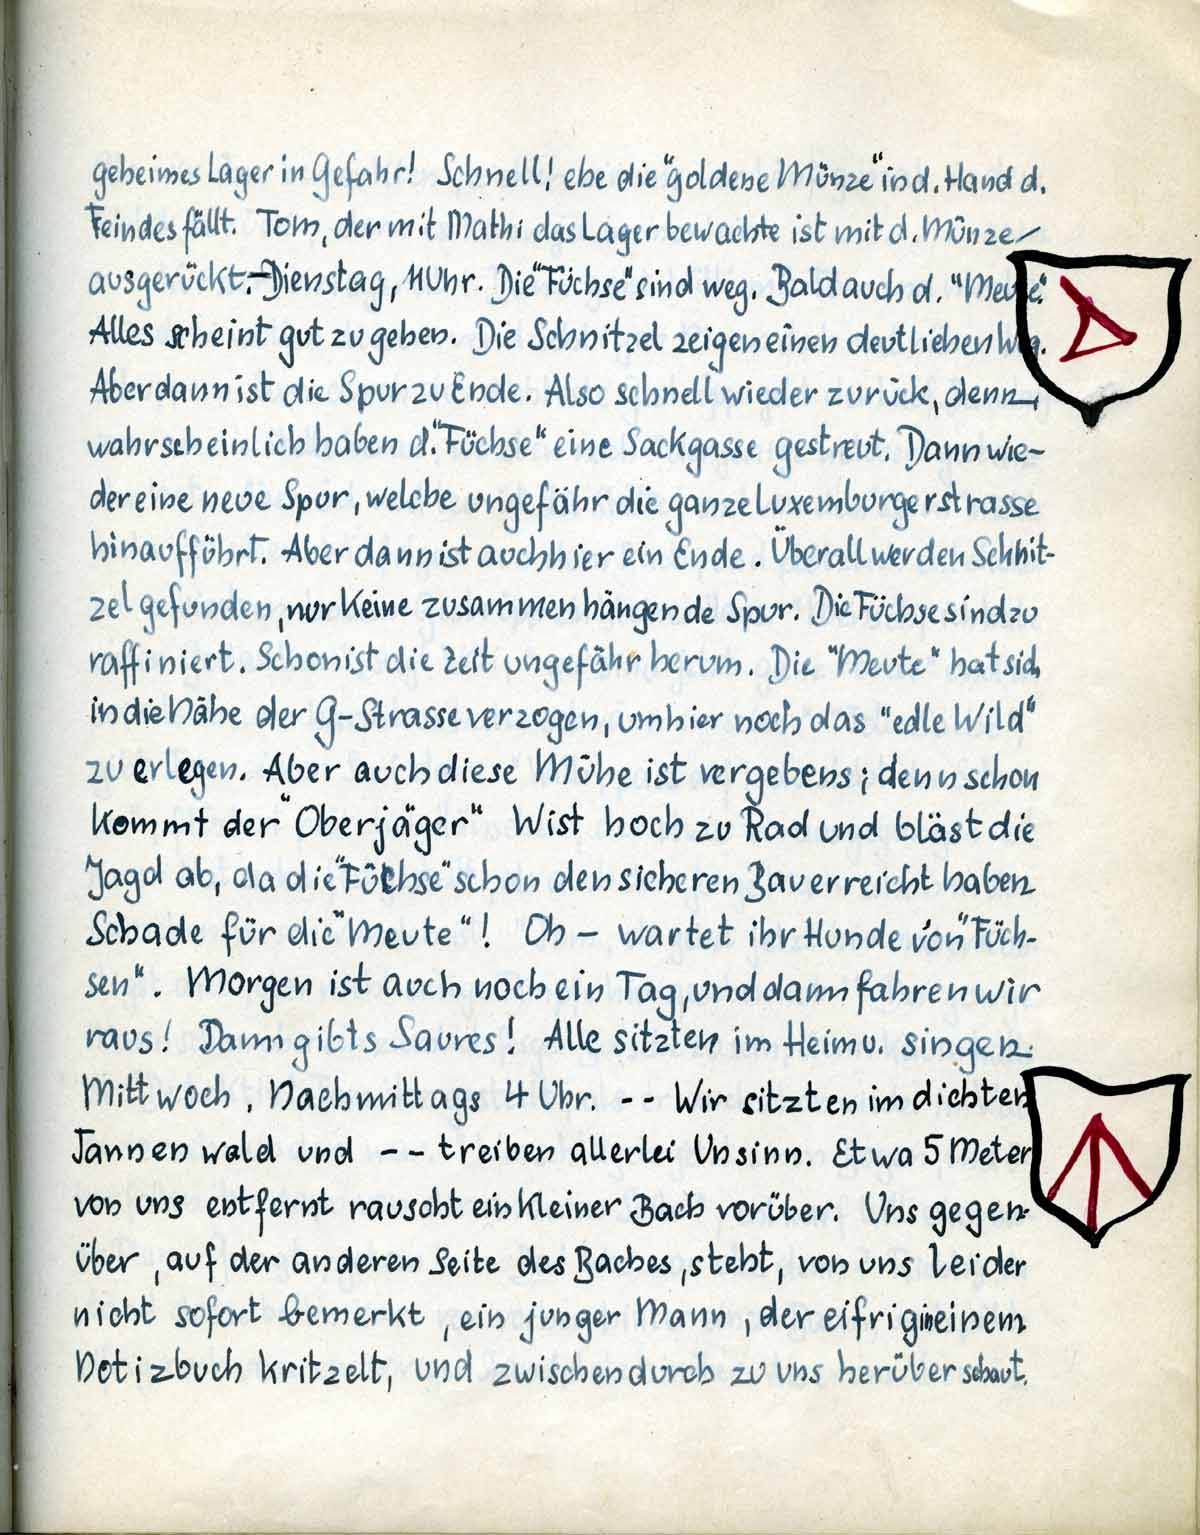 geheimes Lager in Gefahr! Schnell! ehe die "goldene Münze" in d. Hand d.
Feindes fällt. Tom, der mit Mathi das Lager bewachte ist mit d. Münze
ausgerückt.- Dienstag, 11 Uhr. Die "Füchse" sind weg. Bald auch d. "Meute".
Alles scheint gut zu gehen. Die Schnitzel zeigen einen deutlichen Weg.
Aber dann ist die Spur zu Ende. Also schnell wieder zurück, denn
wahrscheinlich haben d. "Füchse" eine Sackgasse gestreut. Dann wie-
der eine neue Spur, welche ungefähr die ganze Luxemburgerstrasse
hinaufführt. Aber dann ist auch hier ein Ende. Überall werden Schnit-
zel gefunden, nur keine zusammenhängende Spur. Die Füchse sind zu
raffiniert. Schon ist die Zeit ungefähr herum. Die "Meute" hat sich
in die Nähe der G-Strasse verzogen, um hier noch das "edle Wild"
zu erlegen. Aber auch diese Mühe ist vergebens; denn schon
kommt der "Oberjäger" Wist hoch zu Rad und bläst die
Jagd ab, da die "Füchse" schon den sicheren Bau erreicht haben
Schade für die "Meute"! Oh - wartet ihr Hunde von "Füch-
sen". Morgen ist auch noch ein Tag, und dann fahren wir
raus! Dann gibts Saures! Alle sitzten im Heim u. singen.
Mittwoch, Nachmittags 4 Uhr. -- Wir sitzten im dichten
Tannenwald und -- treiben allerlei Unsinn. Etwa 5 Meter
von uns entfernt rauscht ein kleiner Bach vorüber. Uns gegen-
über, auf der anderen Seite des Baches, steht, von uns leider
nicht sofort bemerkt, ein junger Mann, der eifrig in einem
Notizbuch kritzelt, und zwischendurch zu uns herüber schaut.